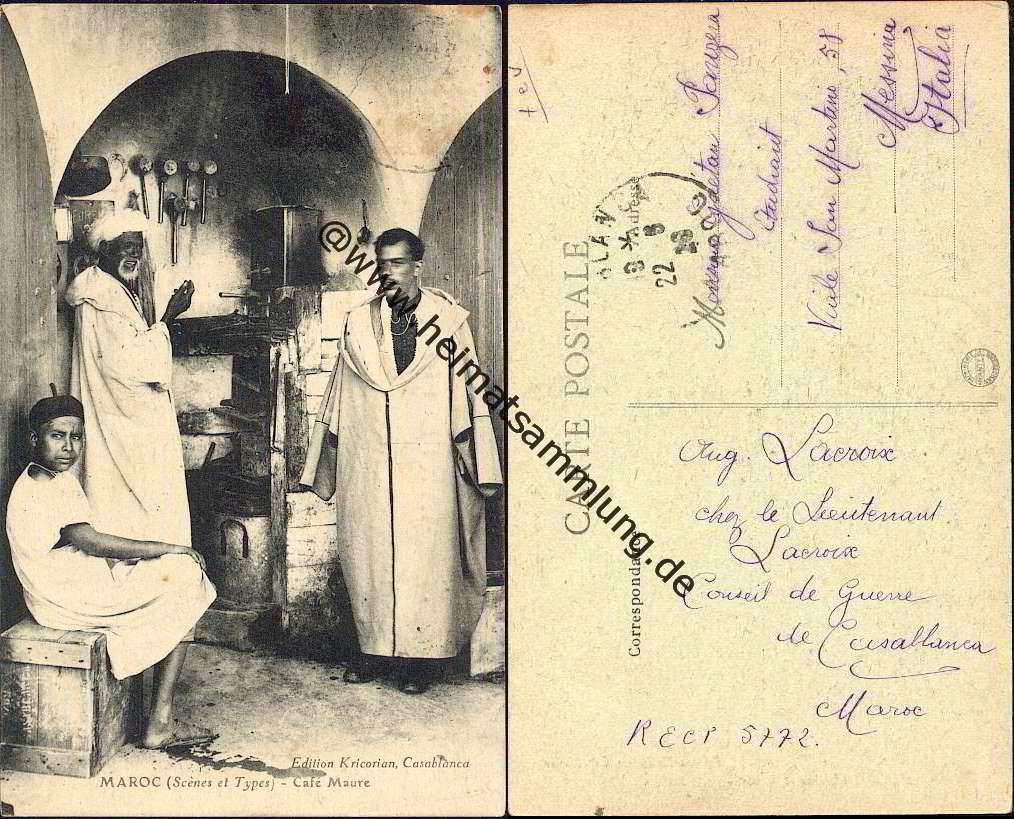 Edition Kricorian, Casablanca
MAROC (Scènes et Types) - Café Maure
@www.heimatsammlung.de
CARTE POSTALE
Correspondance
Adresse
Étudiant
Viale San Martino, 58
Messina
Italia
Aug. Lacroix
chez le Lieutenant
Lacroix
Conseil de Guerre
de Casablanca
Maroc
RECP 5772.